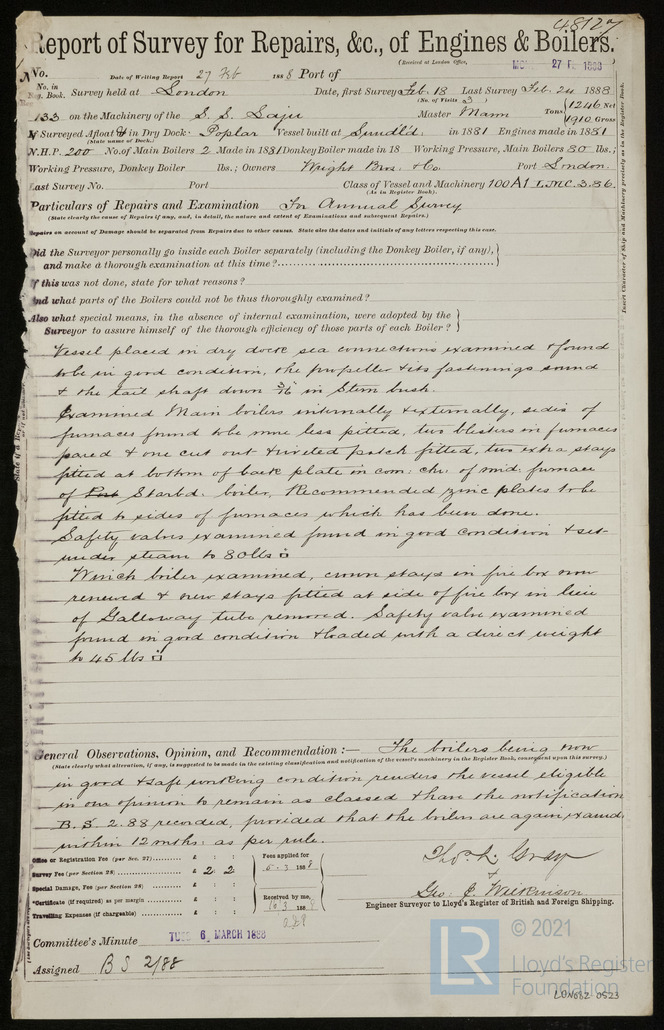 48127
Report of Survey for Repairs, &c., of Engines & Boilers.
(Received at London Office, MON. 27 F. 1888
No. Date of Writing Report 27 Feb 1888 Port of
No. in Reg. Book. Survey held at London Date, first Survey Feb. 18 Last Survey Feb. 24 1888
(No. of Visits 3)
133 on the Machinery of the S. S. Master Mann Tons 1246 Net 1910 Gross
If Surveyed Afloat or in Dry Dock Poplar Vessel built at Sundld. in 1881 Engines made in 1881
(State name of Dock.)
N.H.P. 200 No. of Main Boilers 2 Made in 1881 Donkey Boiler made in 18 Working Pressure, Main Boilers 80 lbs;
Working Pressure, Donkey Boiler lbs.; Owners Wright Bros. & Co. Port London.
Last Survey No. Port Class of Vessel and Machinery 100A1 L.M.C. 3.86.
(As in Register Book).
Particulars of Repairs and Examination For Annual Survey
(State clearly the cause of Repairs if any, and, in detail, the nature and extent of Examinations and subsequent Repairs.)
Repairs on account of Damage should be separated from Repairs due to other causes. State also the dates and initials of any letters respecting this case.
Did the Surveyor personally go inside each Boiler separately (including the Donkey Boiler, if any),
and make a thorough examination at this time?
If this was not done, state for what reasons?
And what parts of the Boilers could not be thus thoroughly examined?
Also what special means, in the absence of internal examination, were adopted by the
Surveyor to assure himself of the thorough efficiency of those parts of each Boiler?
Insert Character of Ship and Machinery precisely as in the Register Book.
Vessel placed in dry dock sea connections examined & found
to be in good condition, the propeller & its fastenings sound
& the tail shaft down 3/16 in Stern bush.
Examined Main boilers internally & externally, sides of
furnaces found to be more less pitted, two blisters in furnaces
pared & one cut out & riveted patch fitted, two extra stays
fitted at bottom of back plate in com: chr. of mid: furnace
of Port Starbd. boiler, Recommended zinc plates to be
fitted to sides of furnaces which has been done.
Safety valves examined found in good condition & set
under steam to 80 lbs □
Winch boiler examined, crown stays in fire box now
renewed & new stays fitted at side of fire box in lieu
of Galloway tube removed. Safety valve examined
found in good condition & loaded with a direct weight
to 45 lbs □
General Observations, Opinion, and Recommendation :— The boilers being now
(State clearly what alteration, if any, is suggested to be made in the existing classification and notification of the vessel's machinery in the Register Book, consequent upon this survey.)
in good & safe working condition renders the vessel eligible
in our opinion to remain as classed & have the notification
B.S. 2.88 recorded, provided that the boilers are again examd
within 12 mths: as per rule.
Office or Registration Fee (per Sec. 27) £ : :
Survey Fee (per Section 28) £ 2 : 2 :
Special Damage, Fee (per Section 28) £ : :
*Certificate (if required) as per margin £ : :
Travelling Expenses (if chargeable) £ : :
Fees applied for
5.3.1888
Received by me,
188
Thos. A. Gray
&
Geo. E. Wilkinson
Engineer Surveyor to Lloyd's Register of British and Foreign Shipping.
Committee's Minute TUES 6 MARCH 1888
Assigned B S 2/88
LR
© 2021
Lloyd's Register
Foundation
LON082-0523